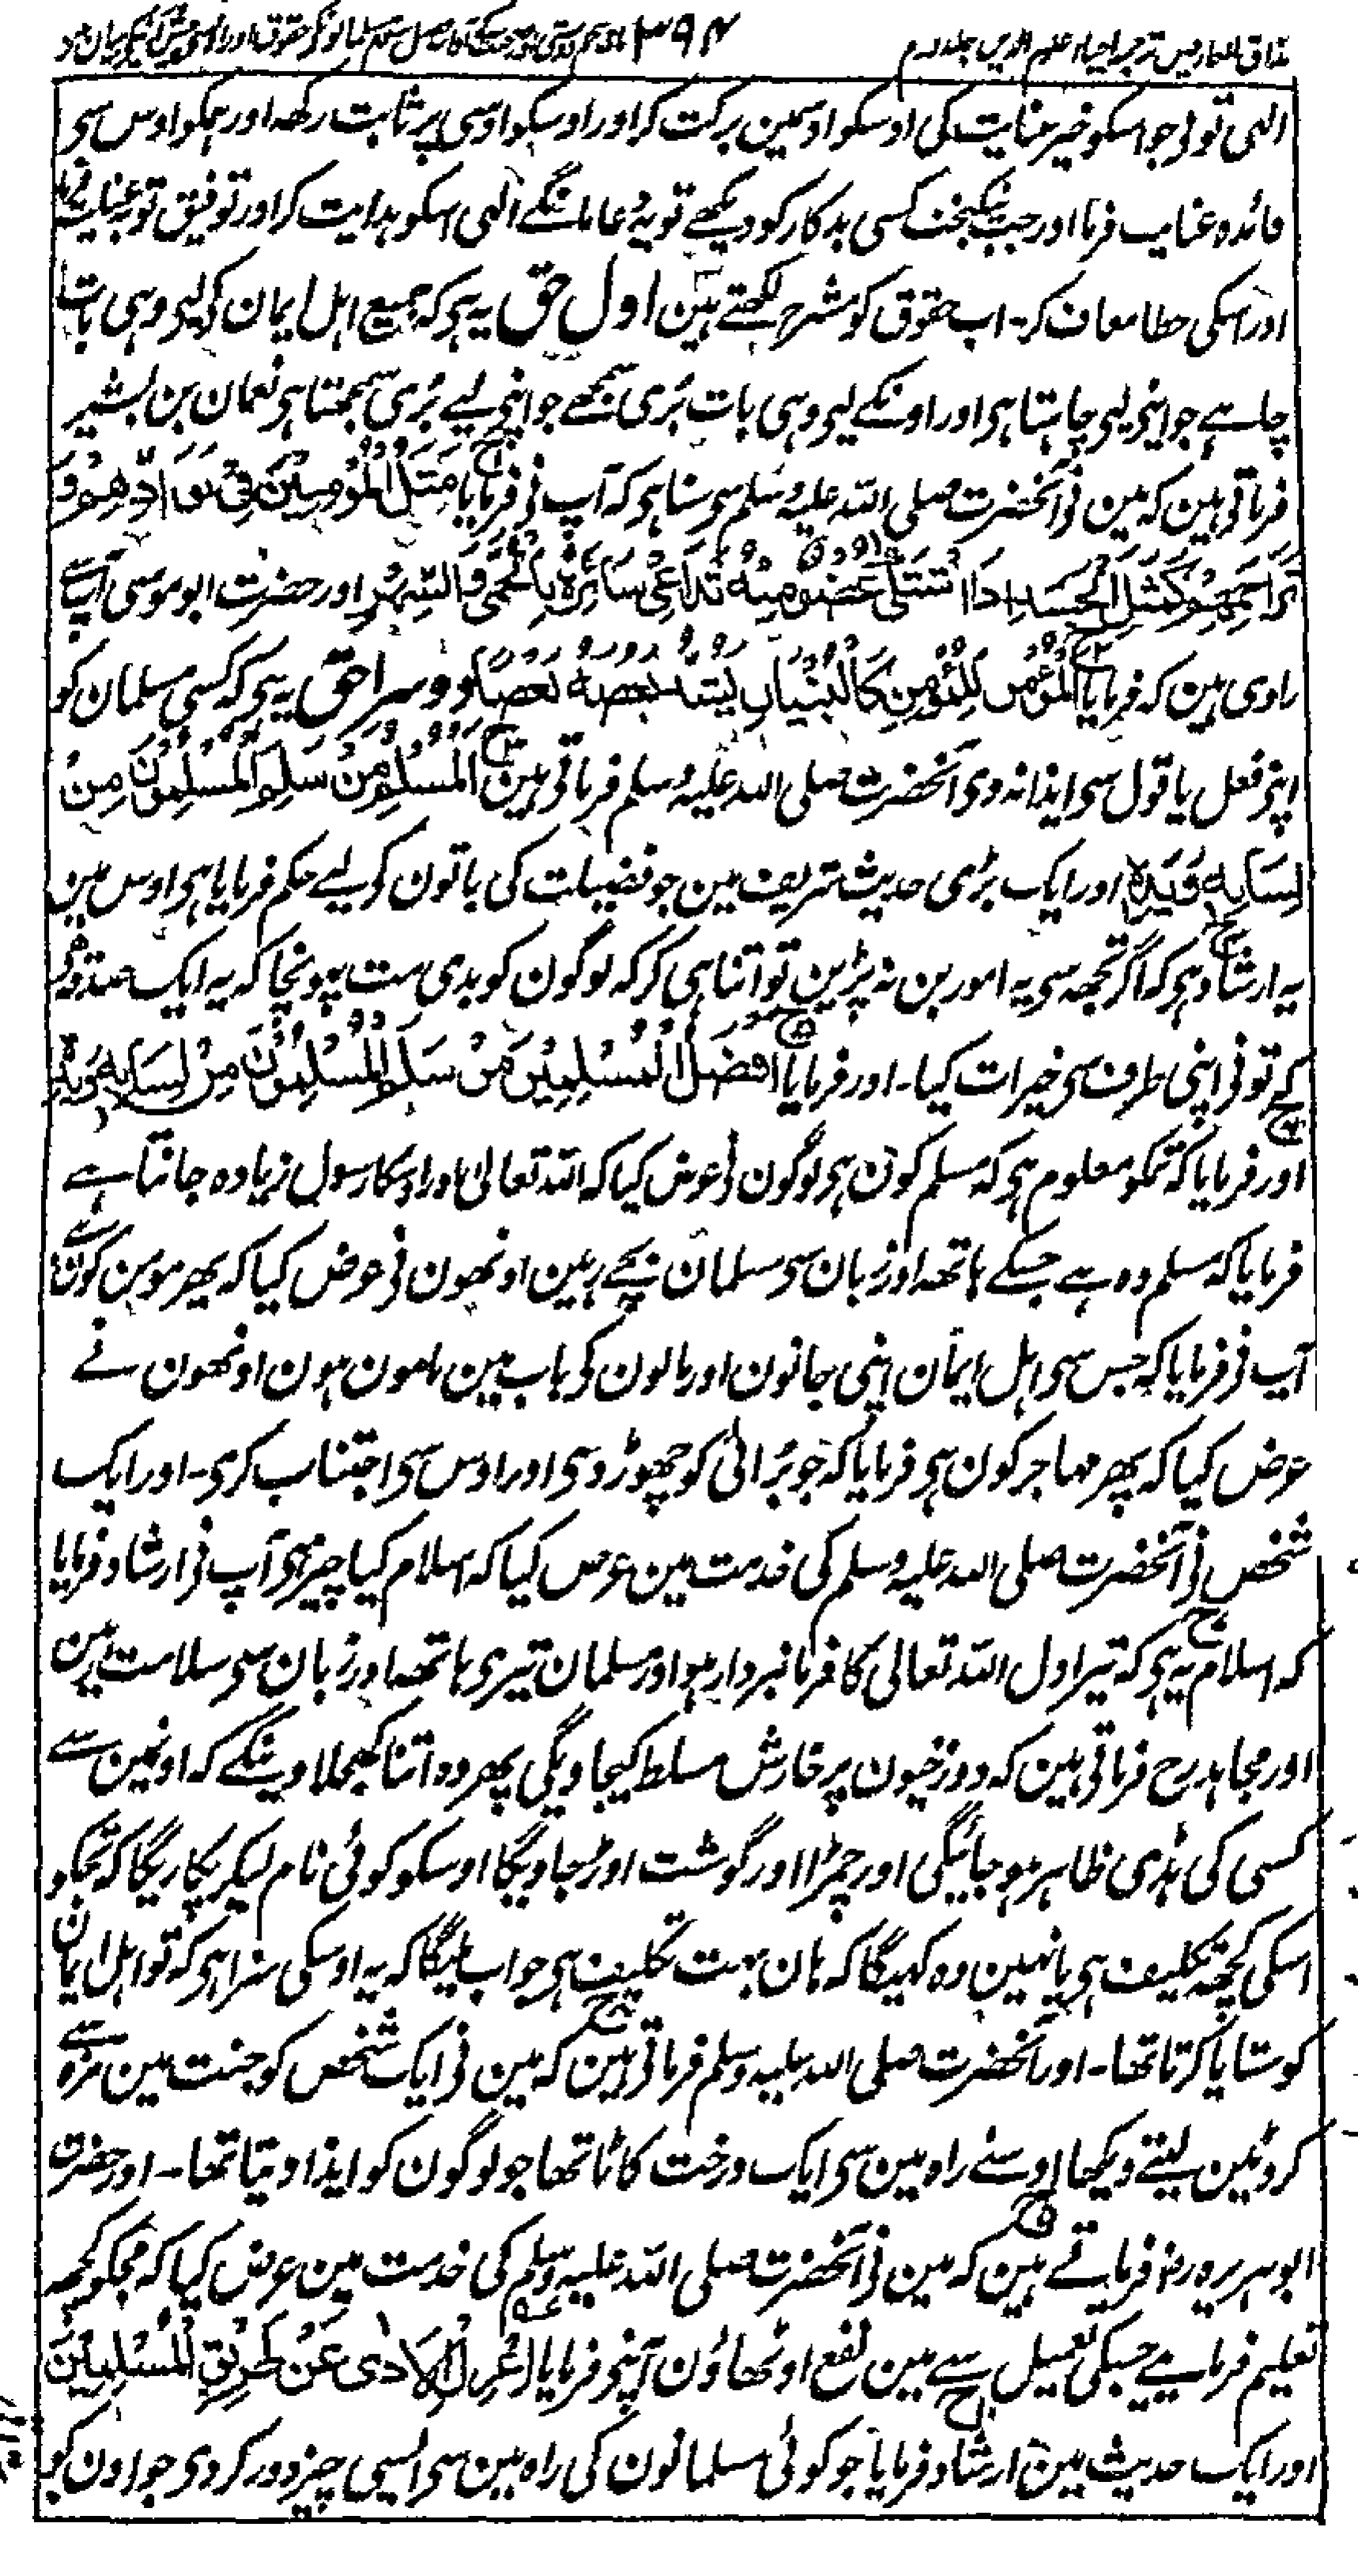 مذاق العارفین ترجمہ احیاء علوم الدین جلد دوم ۳۹۴
الہی تونی جو اسکو خیر عنایت کی اوسکو اوسمین برکت کر اور اوسکو اوسی پر ثابت رکھہ اور ہمکو اوس سی
فائدہ عنایت فرما اور جب نیکبخت کسی بدکار کو دیکھے تو یہ دعا مانگے الہی اسکو ہدایت کر اور توفیق توبہ عنایت فرما
اور اسکی خطا معاف کر۔ اب حقوق کو مشرح لکھتے ہین اول حق یہ ہی کہ جمیع اہل ایمان کی لیی وہی بات
چاہے جو اپنی لیی چاہتا ہی اور اونکے لیی وہی بات بُری سمجھے جو اپنی لیے بُری سمجھتا ہی نعمان بن بشیر
فرماتی ہین کہ مین نی آنحضرت صلی اللہ علیہ وسلم سی سنا ہی کہ آپ نی فرمایا مَثَلُ الْمُؤْمِنِيْنَ فِيْ تَوَادِّهِمْ وَ
تَرَاحُمِهِمْ كَمَثَلِ الْجَسَدِ اِذَا اشْتَكٰى عُضْوٌ مِنْهُ تَدَاعٰى سَائِرُهٗ بِالْحُمّٰى وَالسَّهَرِ اور حضرت ابو موسی آپ سے
راوی ہین کہ فرمایا اَلْمُؤْمِنُ لِلْمُؤْمِنِ كَالْبُنْيَانِ يَشُدُّ بَعْضُهٗ بَعْضًا دوسرا حق یہ ہی کہ کسی مسلمان کو
اپنی فعل یا قول سی ایذا نہ دی آنحضرت صلی اللہ علیہ وسلم فرماتی ہین اَلْمُسْلِمُ مَنْ سَلِمَ الْمُسْلِمُوْنَ مِنْ
لِسَانِهٖ وَيَدِهٖ اور ایک بڑی حدیث شریف مین جو فضیلت کی باتون کو لیے حکم فرمایا ہی اوس مین
یہ ارشاد ہی کہ اگر تجھہ سی یہ امور بن نہ پڑین تو اتنا ہی کر کہ لوگون کو بدی مت پہونچا کہ یہ ایک صدقہ
کہ تو نی اپنی طرف سی خیرات کیا۔ اور فرمایا اَفْضَلُ الْمُسْلِمِيْنَ مَنْ سَلِمَ الْمُسْلِمُوْنَ مِنْ لِسَانِهٖ وَيَدِهٖ
اور فرمایا کہ تمکو معلوم ہی کہ مسلم کون ہی لوگون نی عرض کیا کہ اللہ تعالی اور اوسکا رسول زیادہ جانتا ہے
فرمایا کہ مسلم وہ ہے جسکے ہاتھہ اور زبان سی مسلمان بچے رہین اونھون نی عرض کیا کہ پھر مومن کون ہے
آپ نی فرمایا کہ جس سی اہل ایمان اپنی جانون اور مالون کی باب مین مامون ہون اونھون نے
عرض کیا کہ پھر مہاجر کون ہی فرمایا کہ جو بُرائی کو چھوڑ دی اور اوس سی اجتناب کری۔ اور ایک
شخص نی آنحضرت صلی اللہ علیہ وسلم کی خدمت مین عرض کیا کہ اسلام کیا چیز ہی آپ نی ارشاد فرمایا
کہ اسلام یہ ہی کہ تیرا دل اللہ تعالی کا فرمانبردار ہو اور مسلمان تیری ہاتھہ اور زبان سی سلامت رہین
اور مجاہد رح فرماتی ہین کہ دوزخیون پر خارش مسلط کیجاویگی پھر وہ اتنا کھجلاوینگے کہ اونمین سے
کسی کی ہڈی ظاہر ہو جائیگی اور چمڑا اور گوشت اوڑجاویگا اوسکو کوئی نام لیکر پکاریگا کہ تجکو
اسکی کچھہ تکلیف ہی یا نہین وہ کہیگا کہ ہان بہت تکلیف ہی جواب ملیگا کہ یہ اوسکی سزا ہی کہ تو اہل ایمان
کو ستایا کرتا تھا۔ اور آنحضرت صلی اللہ علیہ وسلم فرماتی ہین کہ مین نی ایک شخص کو جنت مین مزہ سے
کروٹین لیتے دیکھا اوسنے راہ مین سی ایک درخت کاٹا تھا جو لوگون کو ایذا دیتا تھا۔ اور حضرت
ابو ہریرہ رض فرماتے ہین کہ مین نی آنحضرت صلی اللہ علیہ وسلم کی خدمت مین عرض کیا کہ مجکو کچھہ
تعلیم فرمایے جسکی تعمیل سے مین نفع اوٹھاؤن آپنی فرمایا اِعْزِلِ الْاَذٰى عَنْ طَرِيْقِ الْمُسْلِمِيْنَ
اور ایک حدیث مین ارشاد فرمایا جو کوئی مسلمانون کی راہ مین سی ایسی چیز دور کردی جو اون کو